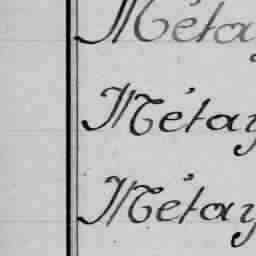 Métay
Métay
Métay